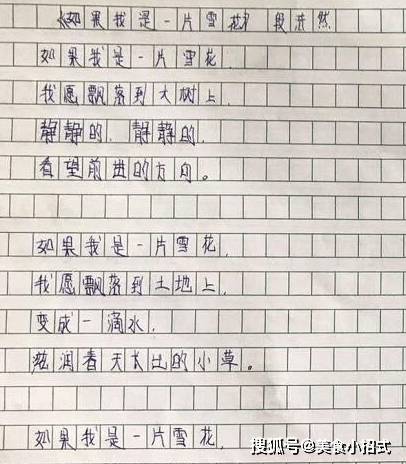 《如果我是一片雪花》 段浩然
如果我是一片雪花,
我愿飘落到大树上,
静静的,静静的,
看望前进的方向。
如果我是一片雪花,
我愿飘落到土地上,
变成一滴水,
滋润着天长出的小草。
如果我是一片雪花,
搜狐号@美食小招式